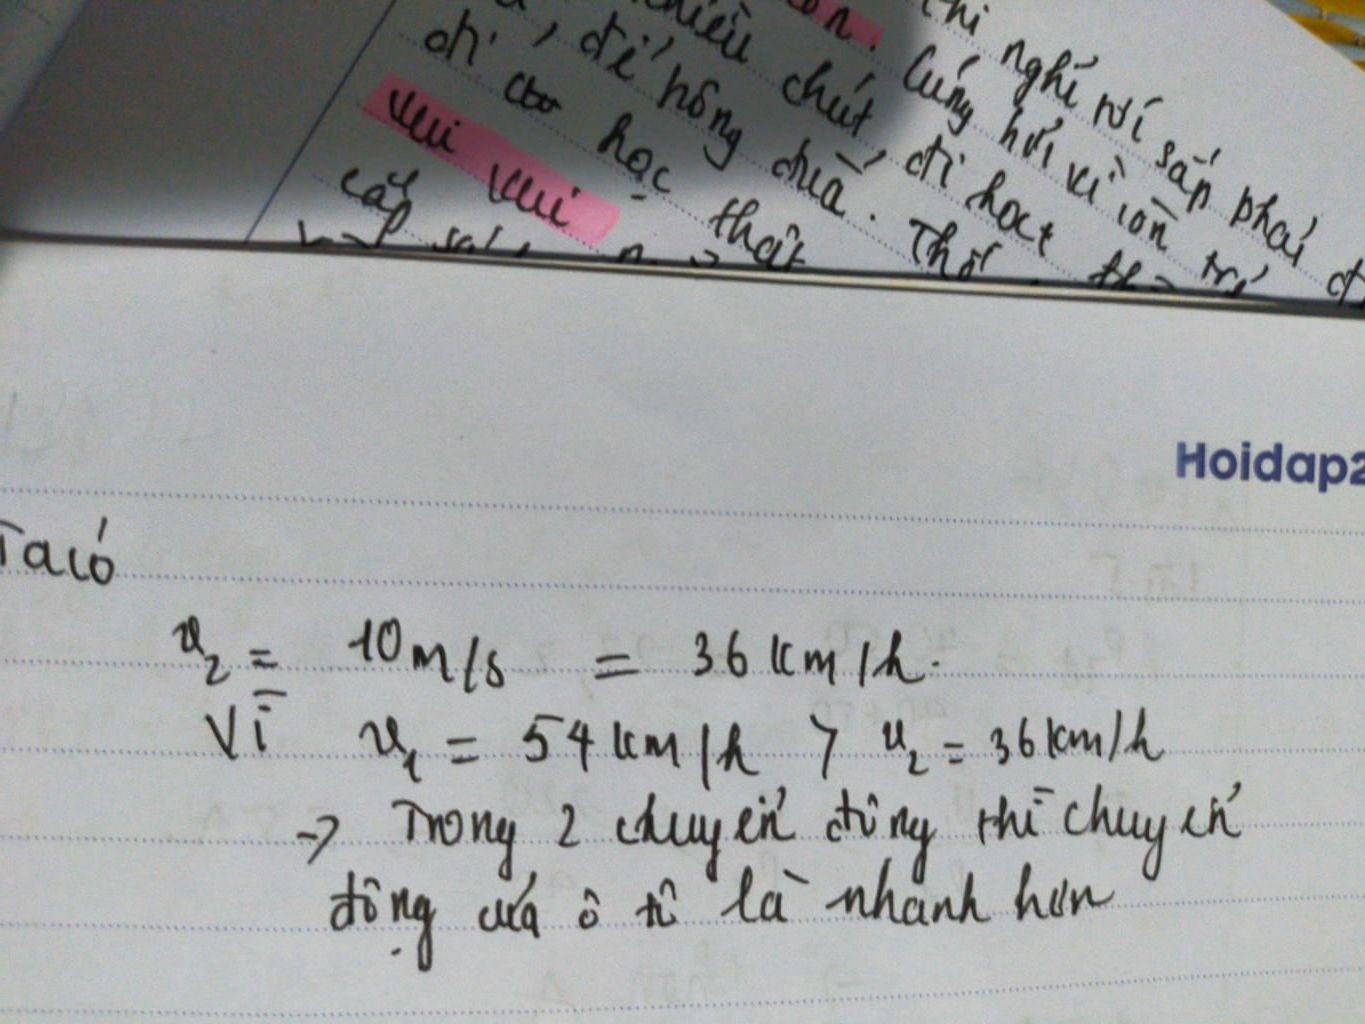 nghỉ rồi sắp phải
chút, cũng hơi vì còn
để hông đưa. đi học
đi học thật
vui vui
Hoidap2
Ta có
v2 = 10m/s = 36 km/h.
Vì v1 = 54 km/h > v2 = 36 km/h
-> Trong 2 chuyển động thì chuyển
động của ô tô là nhanh hơn